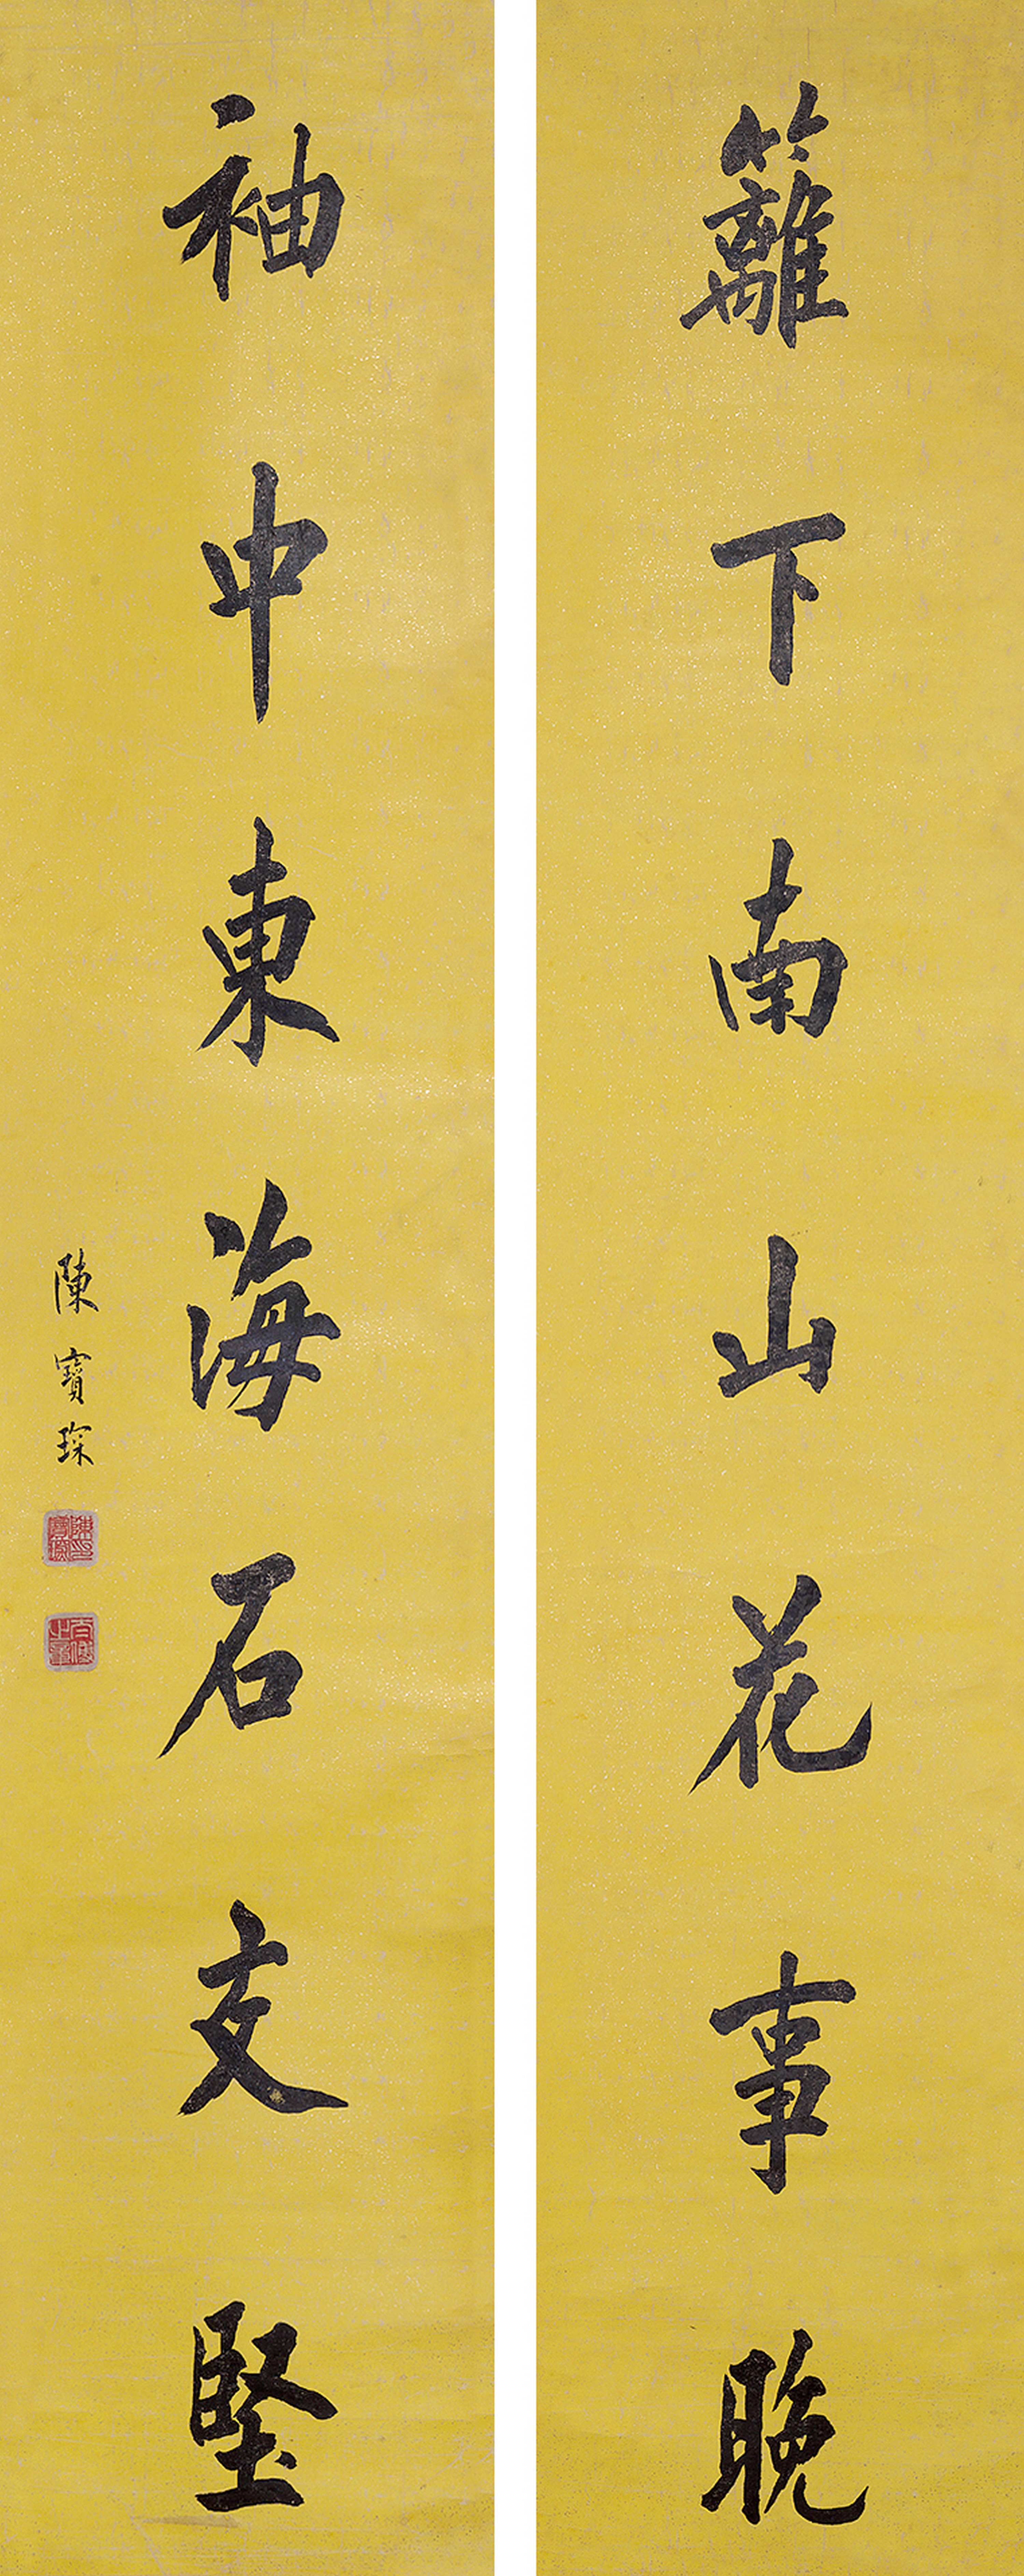 籬下南山花事晚
袖中東海石交堅
陳寶琛
陳印寶琛